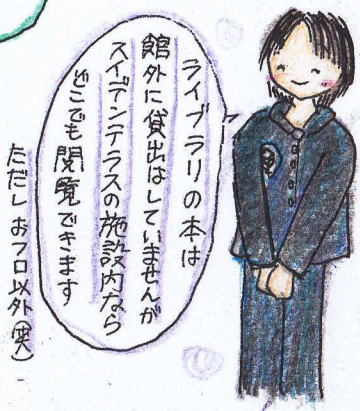 ライブラリの本は
館外に貸出はしていませんが
スイデンテラスの施設内なら
どこでも閲覧できます
ただしおフロ以外(笑)